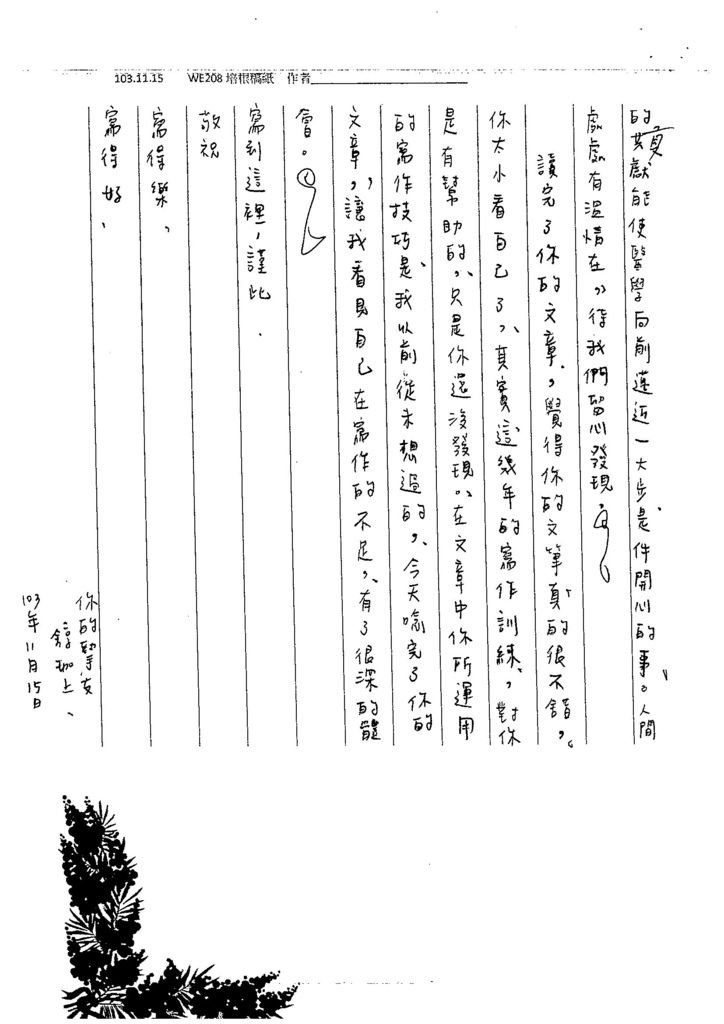 103.11.15 WE208 培根稿紙 作者
的貢獻能使醫學向前邁近一大步是件開心的事。人間
處處有溫情在,待我們留心發現。
讀完了你的文章,覺得你的文筆真的很不錯,
你太小看自己了,其實這幾年的寫作訓練,對你
是有幫助的,只是你還沒發現。在文章中你所運用
的寫作技巧是我以前從未想過的,今天喻完了你的
文章,讓我看見自己在寫作的不足,有了很深的體
會。
寫到這裡,謹此、
敬祝
寫得樂、
寫得好、
你的摯友
上、
103年11月15日